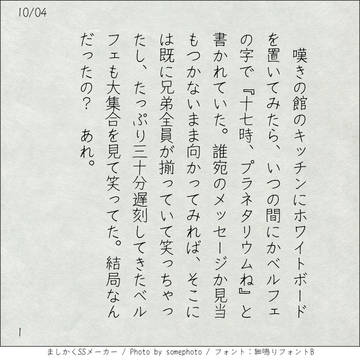 10/04
嘆きの館のキッチンにホワイトボード
を置いてみたら、いつの間にかベルフェ
の字で『十七時、プラネタリウムね』と
書かれていた。誰宛のメッセージか見当
もつかないまま向かってみれば、そこに
は既に兄弟全員が揃っていて笑っちゃっ
たし、たっぷり三十分遅刻してきたベル
フェも大集合を見て笑ってた。結局なん
だったの? あれ。
1
ましかくSSメーカー / Photo by somephoto / フォント:無鳴りフォントB